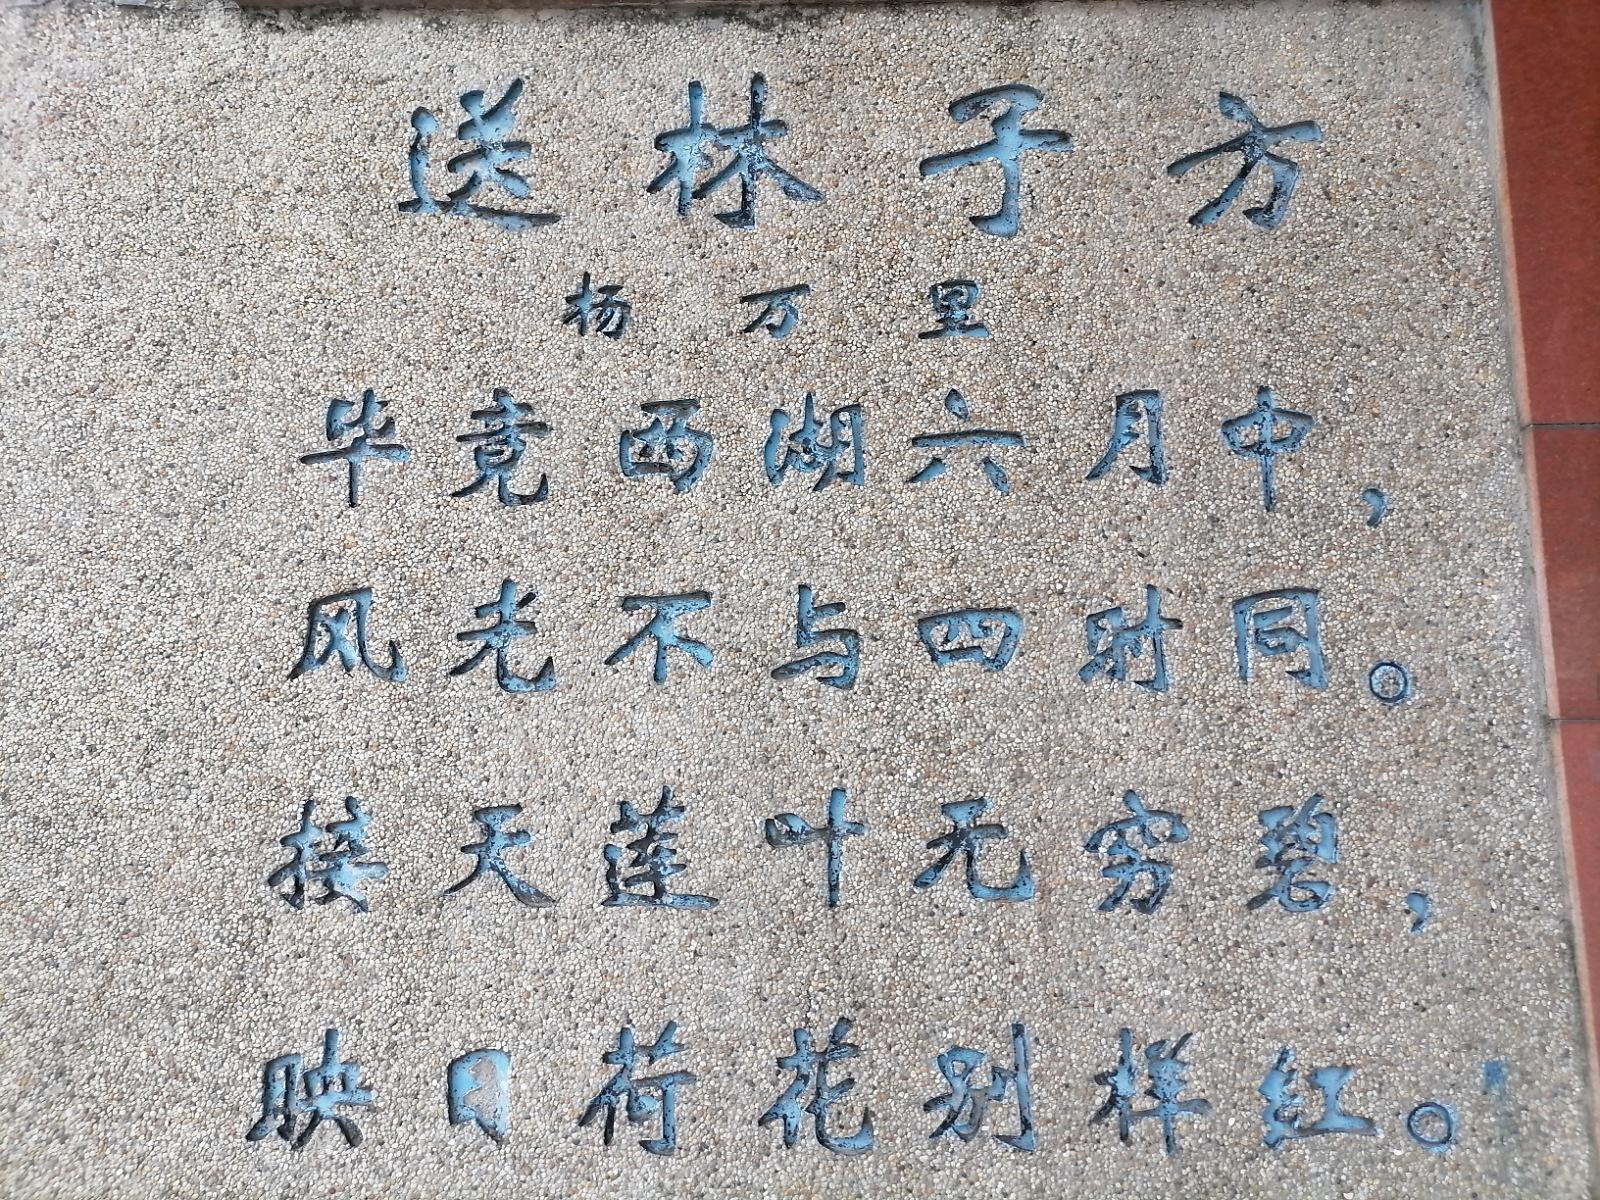 送林子方
杨万里
毕竟西湖六月中，
风光不与四时同。
接天莲叶无穷碧，
映日荷花别样红。